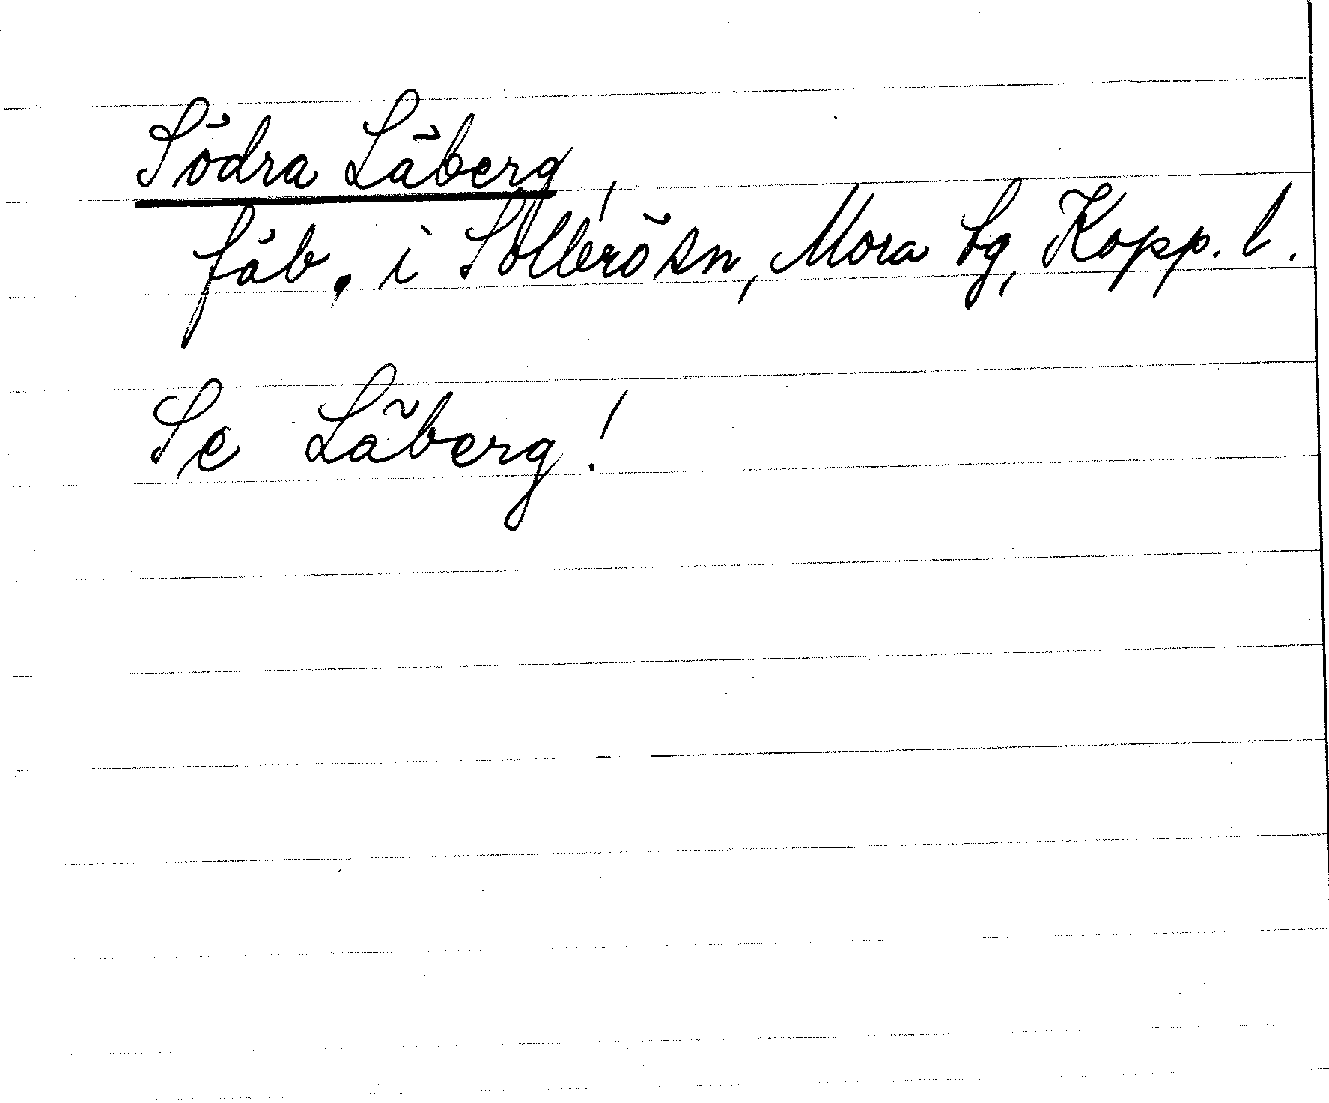 Södra Läberg,
fäb. i Sollerö sn, Mora tg, Kopp. l.
Se Läberg!